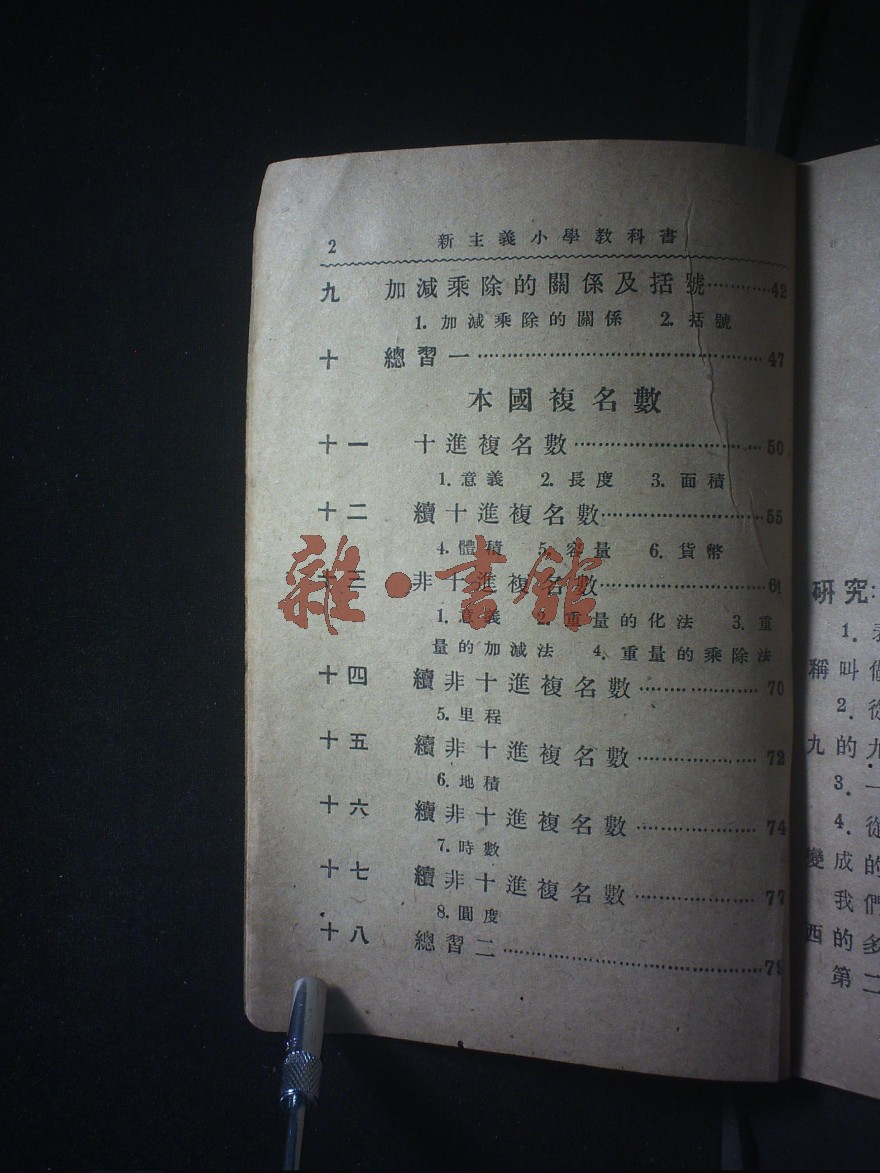 2 新主義小學教科書
九 加減乘除的關係及括號…………42
1. 加減乘除的關係 2. 括號
十 總習一……………………………………47
本國複名數
十一 十進複名數…………………………50
1. 意義 2. 長度 3. 面積
十二 續十進複名數………………………55
4. 體積 5. 容量 6. 貨幣
十三 非十進複名數………………………61
1. 意義 2. 重量的化法 3. 重
量的加減法 4. 重量的乘除法
十四 續非十進複名數…………………70
5. 里程
十五 續非十進複名數…………………72
6. 地積
十六 續非十進複名數…………………74
7. 時數
十七 續非十進複名數…………………77
8. 圓度
十八 總習二……………………………………79
雜·書館
研究:
1.
稱叫
2. 從
九的九
3. 一
4. 從
變成的
我們
西的多
第二